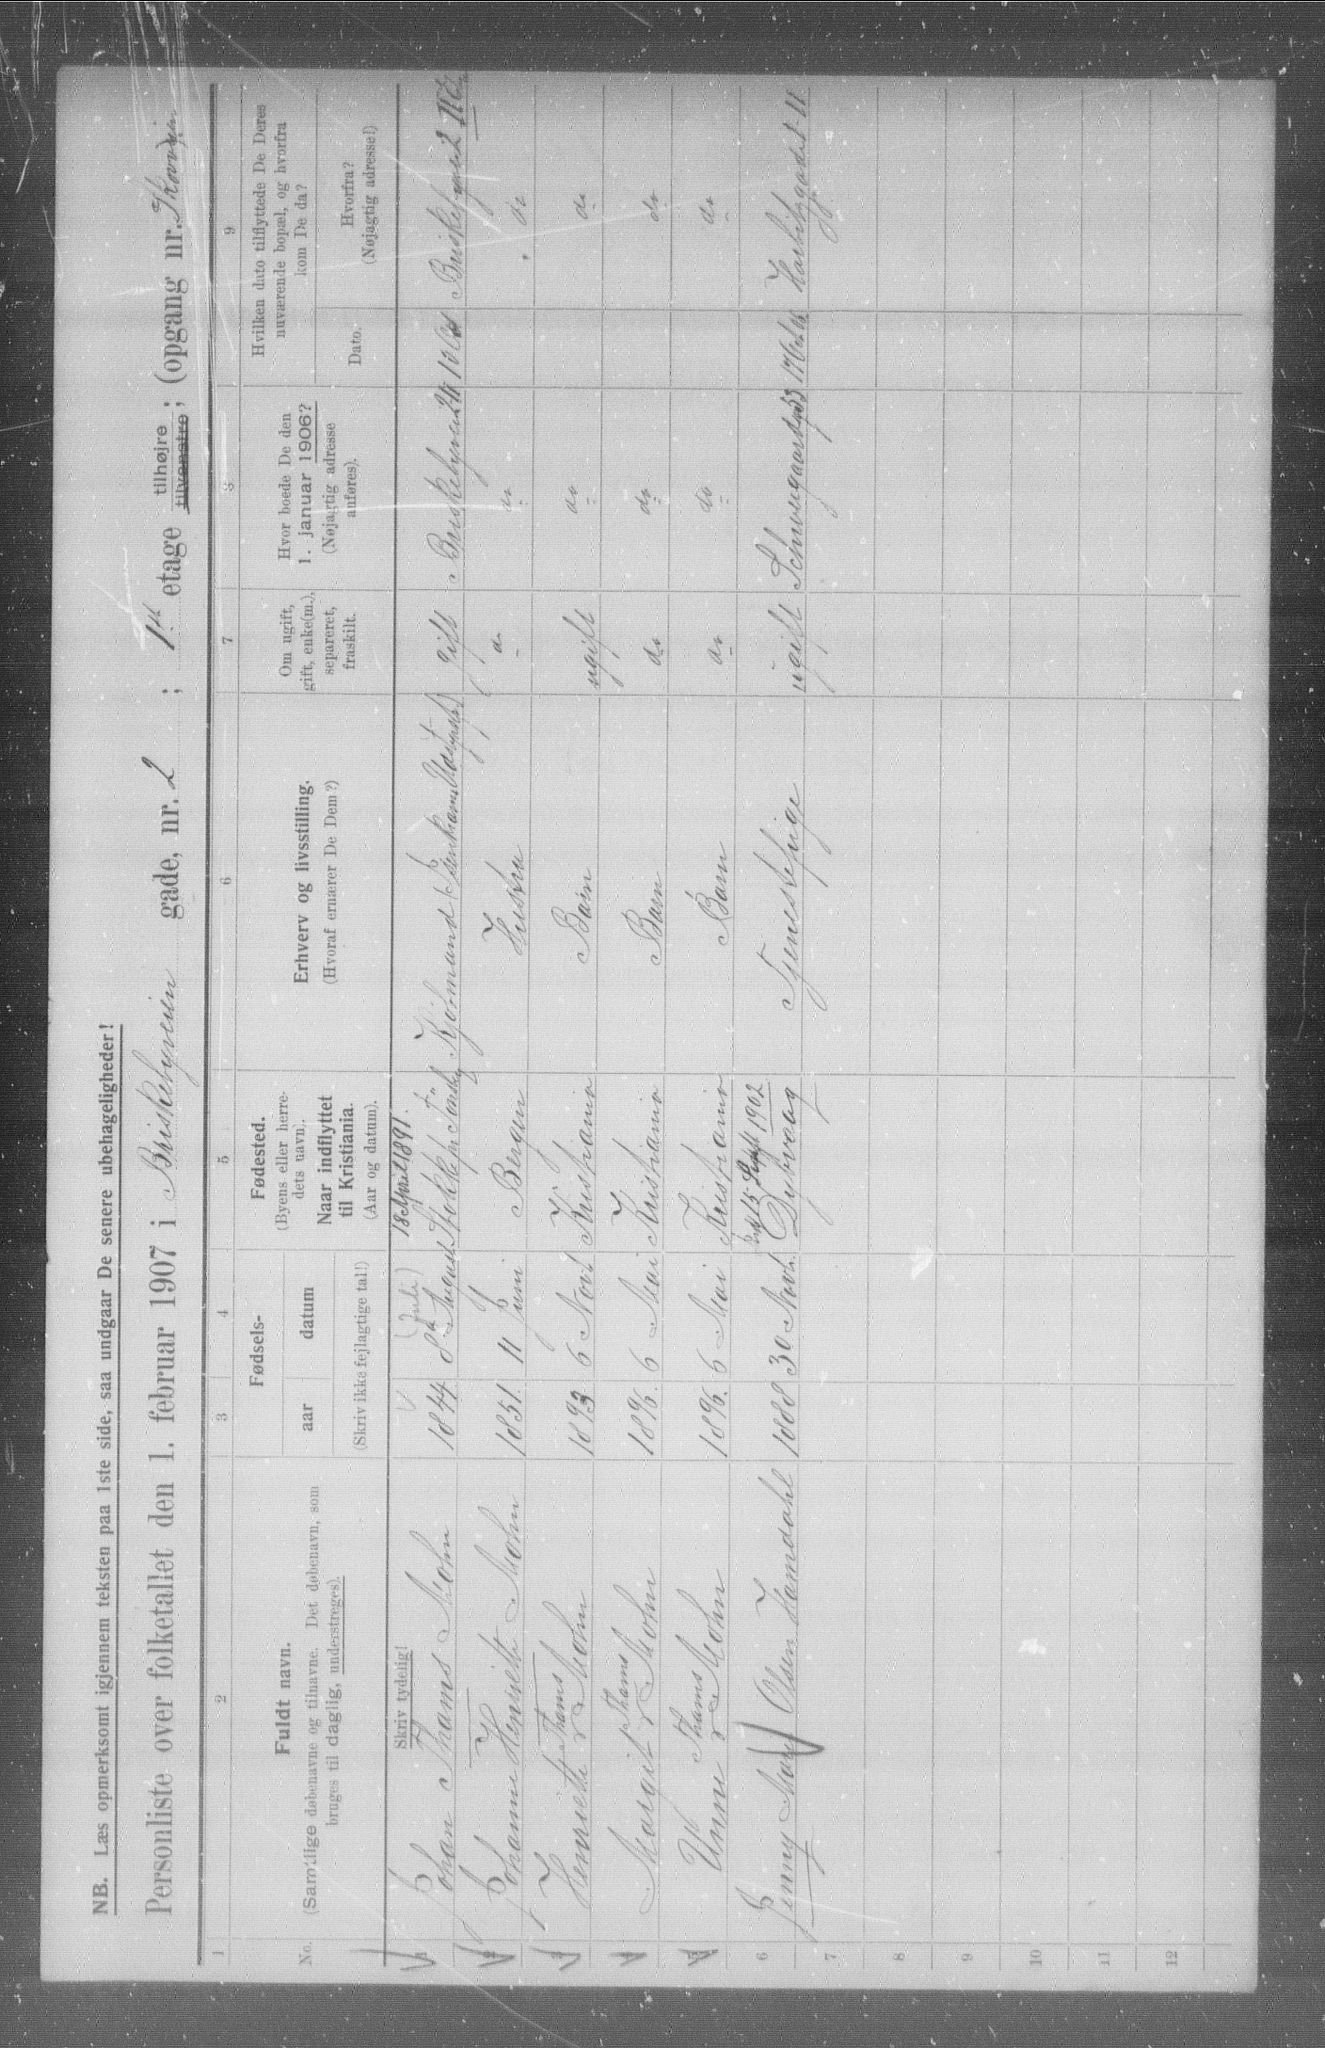 NB. Læs opmerksomt igjennem teksten paa 1ste side, saa undgaar De senere ubehageligheder!
Personliste over folketallet den 1. februar 1907 i Briskebyveien gade, nr. 2 ; 1ste etage tilhøjre tilvenstre ; (opgang nr.
1 2 3 4 5 6 7 8 9
No. Fuldt navn. (Samtlige døbenavne og tilnavne. Det døbenavn, som bruges til daglig, understreges). Fødsels- aar datum (Skriv ikke fejlagtige tal!) Fødested. (Byens eller herredets navn). Naar indflyttet til Kristiania. (Aar og datum). Erhverv og livsstilling. (Hvoraf ernærer De Dem?) Om ugift, gift, enke(m.), separeret, fraskilt. Hvor boede De den 1. januar 1906? (Nøjagtig adresse anføres). Hvilken dato tilflyttede De Deres nuværende bopæl, og hvorfra kom De da? Dato. Hvorfra? (Nøjagtig adresse!)
Skriv tydelig! (Juli) 18 April 1891.
1 Johan Thams Mohn 1844 8de August Kjøbmand gift Briskebyveien Briskebyveien 2
2 Johanne Henriette Mohn 1851. 11 Juni Bergen Hustru do do do
3 Henriette Thams Mohn 1893 6 Novb Kristiania Barn ugift do do
4 Margit Thams Mohn 1896. 6 Mai Kristiania Barn do do do
5 Unni Thams Mohn 1896. 6 Mai Kristiania Barn do do do
15 Septb 1902
6 Jenny Marie Olsen Hamdahl 1888 30 Novb. Dybvaag Tjenestepige ugift
7
8
9
10
11
12